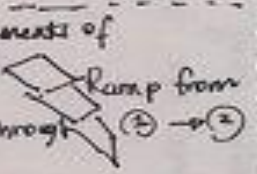 ments of
Ramp from
through ② → ②